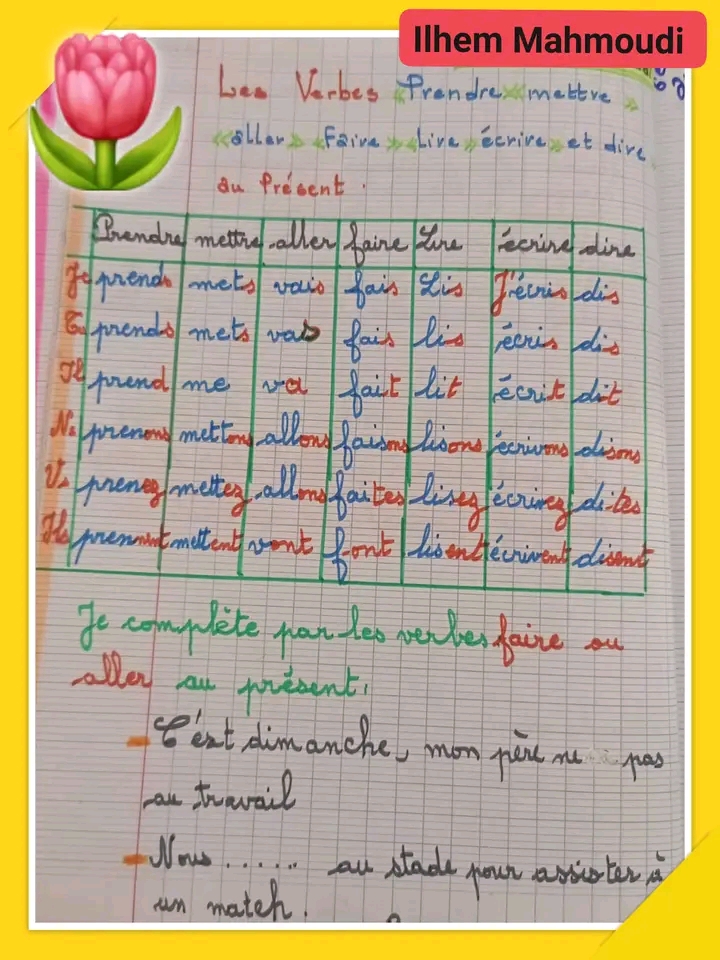 Ilhem Mahmoudi
Les Verbes «Prendre» «mettre»
«aller» «Faire» «Lire» «écrire» et dire
au Présent.
Prendre mettre aller faire Lire écrire dire
Je prends mets vais fais Lis J'écris dis
Tu prends mets vas fais lis écris dis
Il prend me va fait lit écrit dit
N. prenons mettons allons faisons lisons écrivons disons
V. prenez mettez allons faites lisez écrivez dites
Ils prennent mettent vont font lisent écrivent disent
Je complète par les verbes faire ou
aller au présent.
- C'est dimanche, mon père ne pas
au travail
- Nous ..... au stade pour assister à
un match.